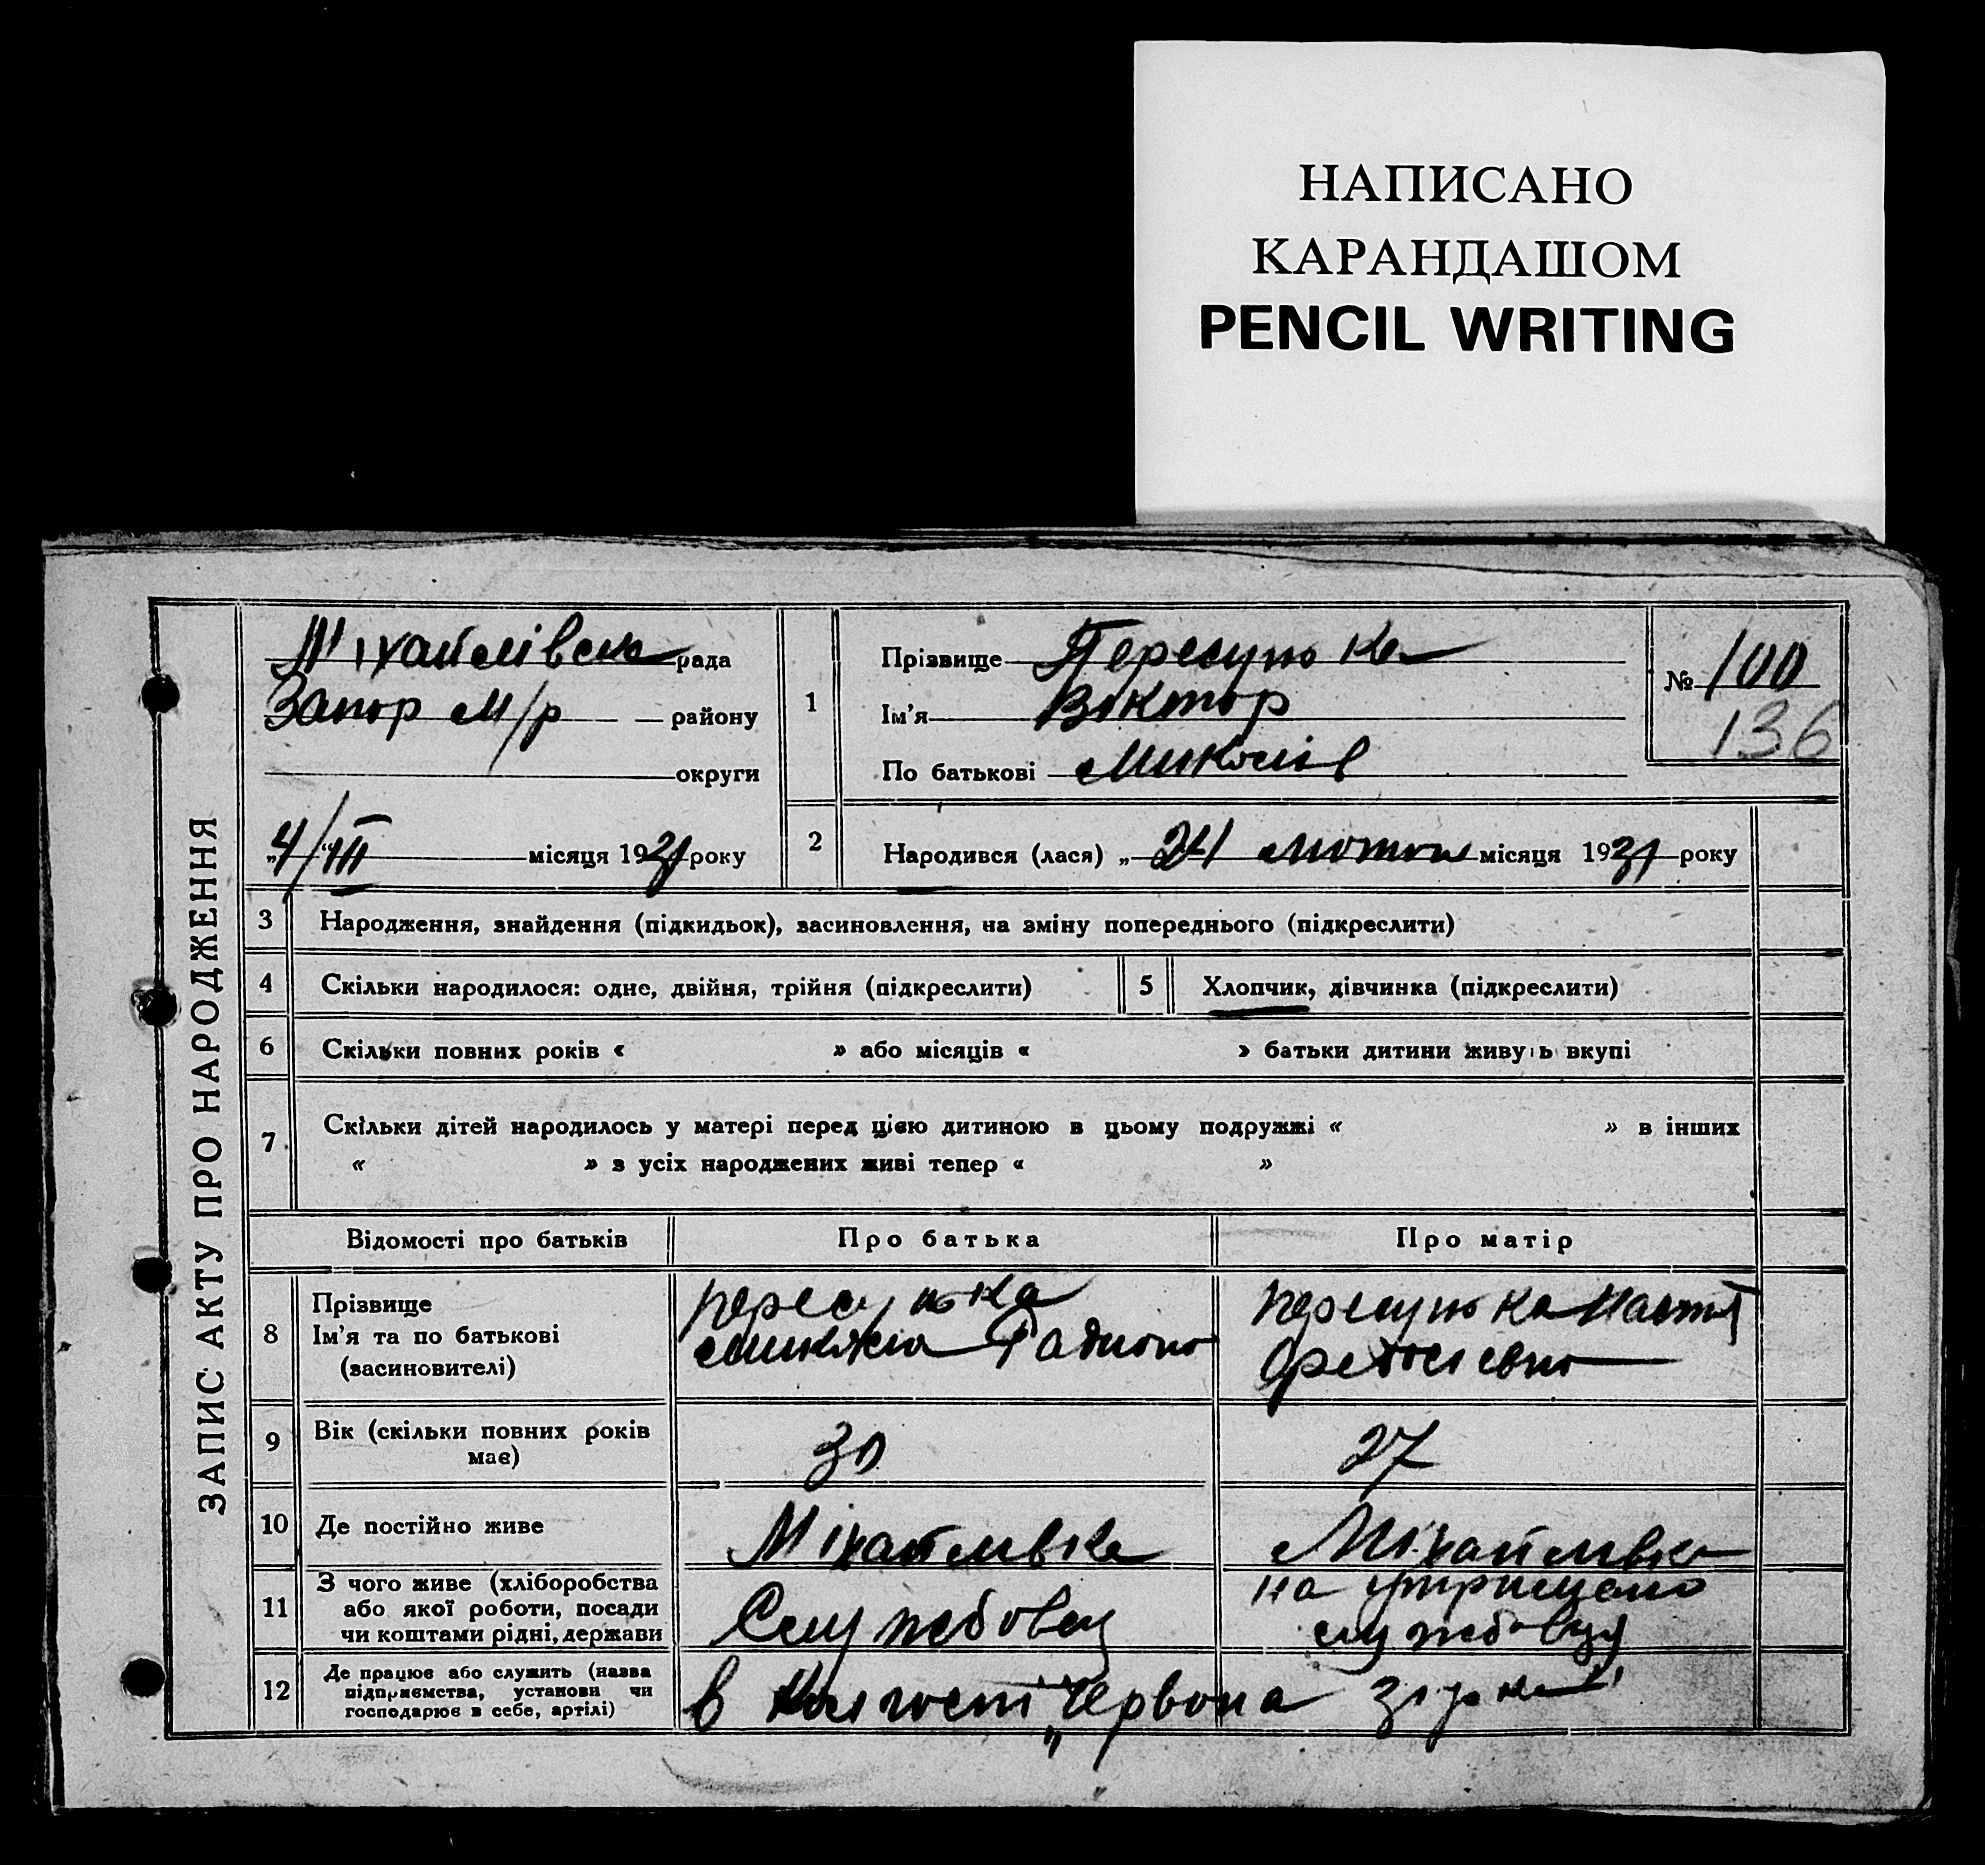 НАПИСАНО
КАРАНДАШОМ
PENCIL WRITING
ЗАПИС АКТУ ПРО НАРОДЖЕННЯ
Міхайлівська рада
Запор м/р району
округи
„4/III місяця 1931 року
1
Прізвище Пересунько
Ім'я Віктор
По батькові Миколів
№ 100
136
2
Народився (лася) „ 24 лютого місяця 1931 року
3 Народження, знайдення (підкидьок), васиновлення, на зміну попереднього (підкреслити)
4 Скільки народилося: одне, двійня, трійня (підкреслити)
5 Хлопчик, дівчинка (підкреслити)
6 Скільки повних років « » або місяців « » батьки дитини живуть вкупі
7 Скільки дітей народилось у матері перед цією дитиною в цьому подружжі « » в інших
« » з усіх народжених живі тепер « »
Відомості про батьків Про батька Про матір
8 Прізвище
Ім'я та по батькові
(васиновителі)
Микола
9 Вік (скільки повних років
має)
30 27
10 Де постійно живе Міхайлівка Міхайлівка
11 З чого живе (хліборобства
або якої роботи, посади
чи коштами рідні, держави
Службовец
на
службовця
12 Де працює або служить (назва
підприємства, установи чи
господарює в себе, артілі)
в „Червона зірка"